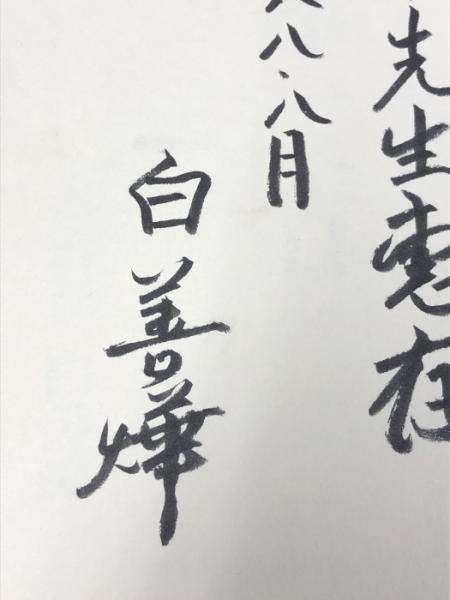 先生惠存
八.八月
白善燁